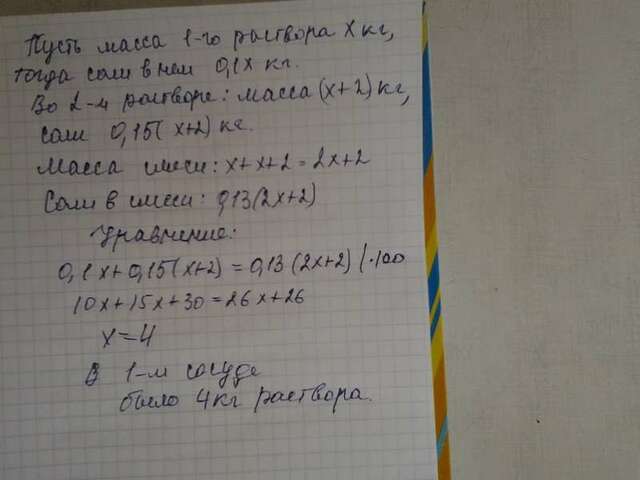 Пусть масса 1-го раствора x кг,
тогда соли в нем 0,1x кг.
Во 2-м растворе: масса (x+2) кг,
соли 0,15(x+2) кг.
Масса смеси: x+x+2=2x+2
Соли в смеси: 0,13(2x+2)
Уравнение:
0,1x+0,15(x+2)=0,13(2x+2) |·100
10x+15x+30=26x+26
x=4
В 1-м сосуде
было 4кг раствора.